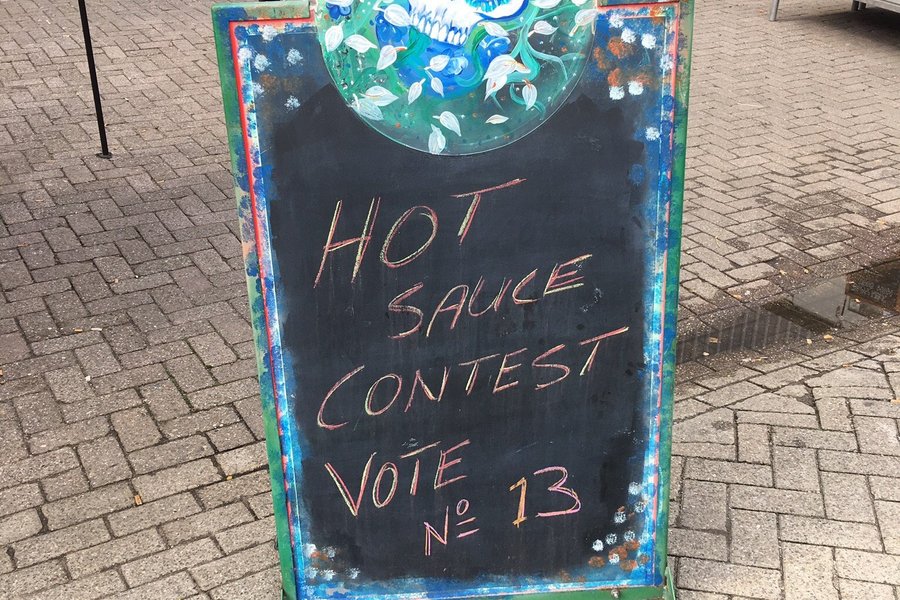 HOT
SAUCE
CONTEST
VOTE
Nº 13